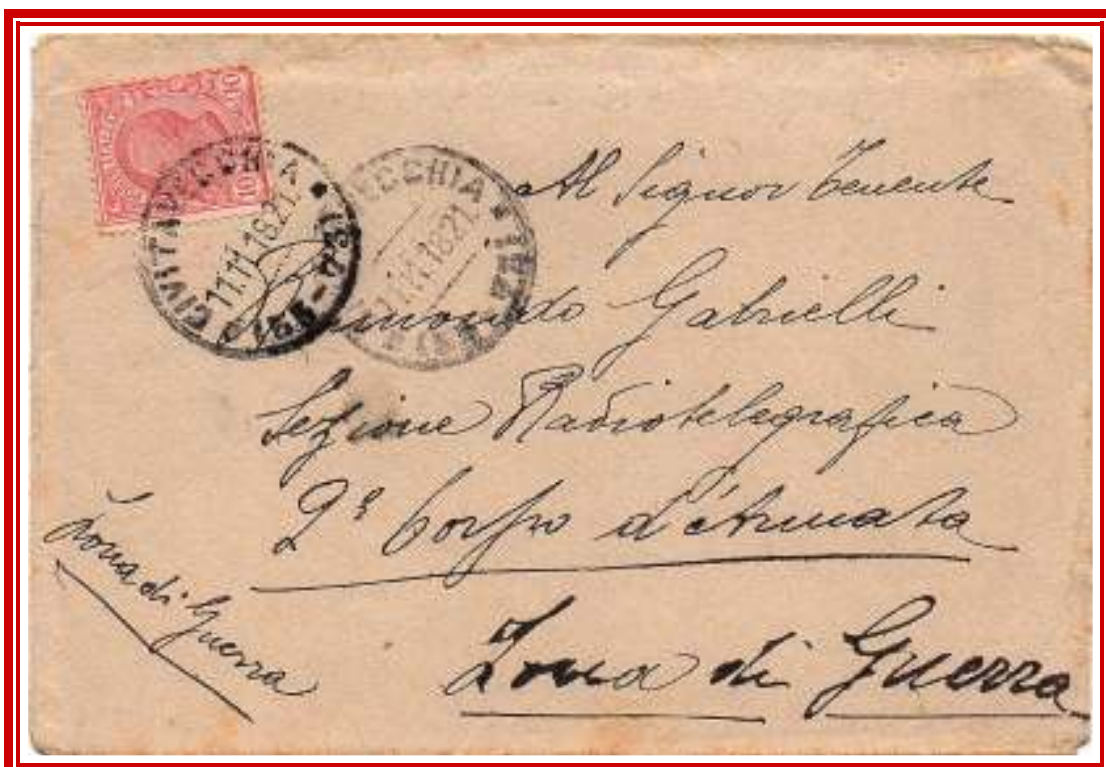 10 10
CIVITAVECCHIA
11.11.18.21
VECCHIA
Al Signor Tenente
Raimondo Gabrielli
Sezione Radiotelegrafica
Corpo d'Armata
Zona di Guerra
Zona di Guerra